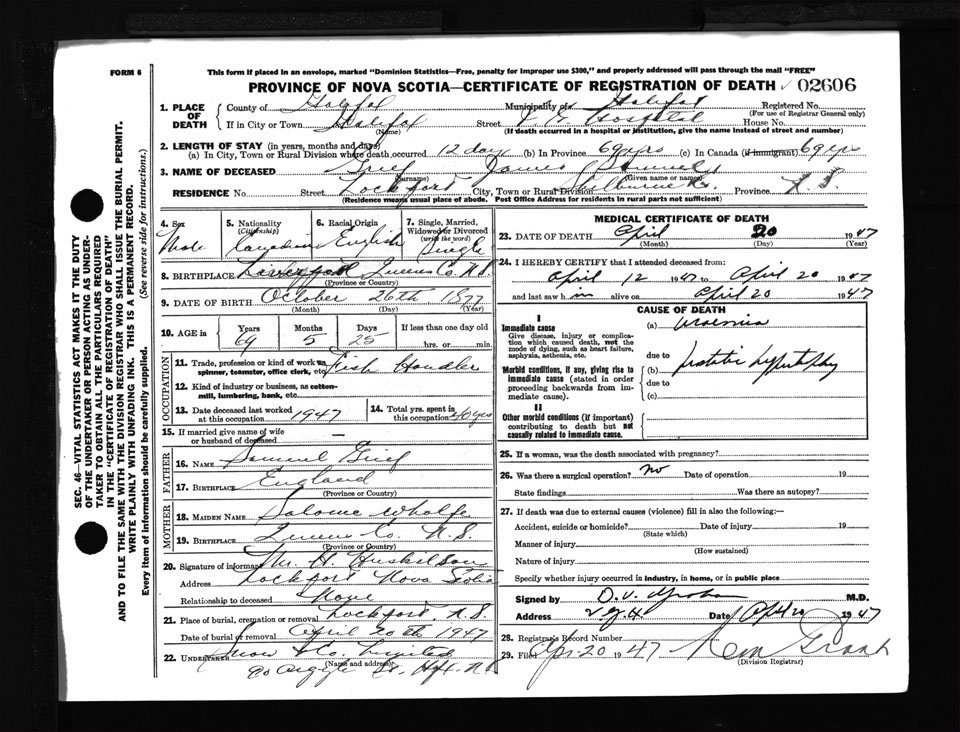 FORM 6
This form if placed in an envelope, marked "Dominion Statistics—Free, penalty for improper use $300," and properly addressed will pass through the mail "FREE"
PROVINCE OF NOVA SCOTIA—CERTIFICATE OF REGISTRATION OF DEATH 02606
1. PLACE OF DEATH
County of Halifax Municipality of Halifax Registered No.
(For use of Registrar General only)
If in City or Town Halifax Street V G Hospital House No.
(Name) (If death occurred in a hospital or institution, give the name instead of street and number)
2. LENGTH OF STAY (in years, months and days)
(a) In City, Town or Rural Division where death occurred 12 days (b) In Province 69 yrs (c) In Canada (if immigrant) 69 yrs
3. NAME OF DECEASED Grief James Samuel
(Surname) (Given name or names)
RESIDENCE No. Street Lockport City, Town or Rural Division Shelburne Co. Province N. S.
(Residence means usual place of abode. Post Office Address for residents in rural parts not sufficient)
4. Sex
Male
5. Nationality (Citizenship)
Canadian
6. Racial Origin
English
7. Single, Married, Widowed or Divorced (write the word)
Single
8. BIRTHPLACE Liverpool Queens Co. N.S.
(Province or Country)
9. DATE OF BIRTH October 26th 1877
(Month) (Day) (Year)
10. AGE in Years Months Days If less than one day old
69 5 25 hrs. or min.
OCCUPATION
11. Trade, profession or kind of work as spinner, teamster, office clerk, etc. Fish Handler
12. Kind of industry or business, as cotton-mill, lumbering, bank, etc.
13. Date deceased last worked at this occupation 1947
14. Total yrs. spent in this occupation 40 yrs
15. If married give name of wife or husband of deceased —
FATHER
16. NAME Samuel Grief
17. BIRTHPLACE England
(Province or Country)
MOTHER
18. MAIDEN NAME Salome Wholfe
19. BIRTHPLACE Queens Co. N.S.
(Province or Country)
20. Signature of informant Mr. H. Huskilson
Address Lockport Nova Scotia
Relationship to deceased None
21. Place of burial, cremation or removal Lockport, N.S.
Date of burial or removal April 20th 1947
22. UNDERTAKER Snow & Co. Limited
(Name and address)
Argyle St. Hfx. N.S.
MEDICAL CERTIFICATE OF DEATH
23. DATE OF DEATH April 20 1947
(Month) (Day) (Year)
24. I HEREBY CERTIFY that I attended deceased from:
April 12 1947 to April 20 1947
and last saw him alive on April 20 1947
CAUSE OF DEATH
I
Immediate cause
Give disease, injury or complication which caused death, not the mode of dying, such as heart failure, asphyxia, asthenia, etc.
(a) Uraemia
due to
Morbid conditions, if any, giving rise to immediate cause (stated in order proceeding backwards from immediate cause).
(b) prostatic hypertrophy
due to
(c)
II
Other morbid conditions (if important) contributing to death but not causally related to immediate cause.
25. If a woman, was the death associated with pregnancy?
26. Was there a surgical operation? No Date of operation 19
State findings Was there an autopsy?
27. If death was due to external causes (violence) fill in also the following:—
Accident, suicide or homicide? Date of injury 19
(State which)
Manner of injury
(How sustained)
Nature of injury
Specify whether injury occurred in industry, in home, or in public place
Signed by O. V. M.D.
Address V.G.H. Date April 20 1947
28. Registrar's Record Number
29. Filed Apr. 20 1947
(Division Registrar)
SEC. 46—VITAL STATISTICS ACT MAKES IT THE DUTY
OF THE UNDERTAKER OR PERSON ACTING AS UNDER-
TAKER TO OBTAIN ALL THE PARTICULARS REQUIRED
IN THE "CERTIFICATE OF REGISTRATION OF DEATH"
AND TO FILE THE SAME WITH THE DIVISION REGISTRAR WHO SHALL ISSUE THE BURIAL PERMIT.
WRITE PLAINLY WITH UNFADING INK. THIS IS A PERMANENT RECORD.
Every item of information should be carefully supplied. (See reverse side for instructions.)